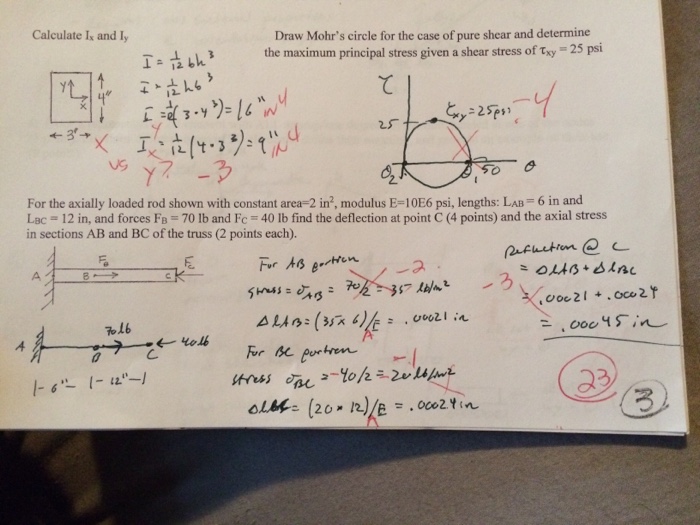 Calculate Ix and Iy
I = 1/12 bh³
I = 1/12 hb³
I = 1/12 (3·4³) = 16" in4
I = 1/12 (4·3³) = 9" in4
Y
X
4"
3"
X
Y
X
vs Y? -3
Draw Mohr's circle for the case of pure shear and determine
the maximum principal stress given a shear stress of τxy = 25 psi
τ
τxy = 25psi -4
25
σ2
σ1 50 σ
For the axially loaded rod shown with constant area=2 in², modulus E=10E6 psi, lengths: LAB = 6 in and
LBC = 12 in, and forces FB = 70 lb and FC = 40 lb find the deflection at point C (4 points) and the axial stress
in sections AB and BC of the truss (2 points each).
A B C
FB
FC
70 lb
A B C 40 lb
|- 6" - |- 12" -|
For AB portion
-2
stress = σAB = 70/2 = 35 lb/in²
ΔLAB = (35 x 6)/E = .00021 in
A
For BC portion
-1
stress σBC = -40/2 = 20 lb/in²
ΔLBC = (20 * 12)/E = .00024 in
A
Deflection @ C
= ΔLAB + ΔLBC
-3
= .00021 + .00024
= .00045 in
23
3